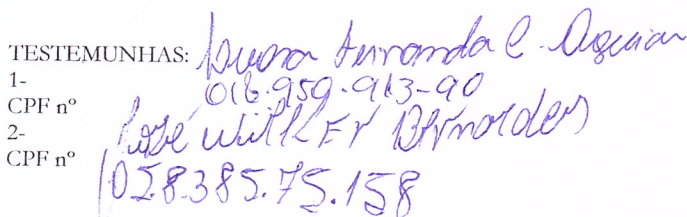 TESTEMUNHAS: Luana Fernanda C. Aguiar
1-
CPF nº 016.959.913-90
2- José Wilker Bernardes
CPF nº 058.385.75.158